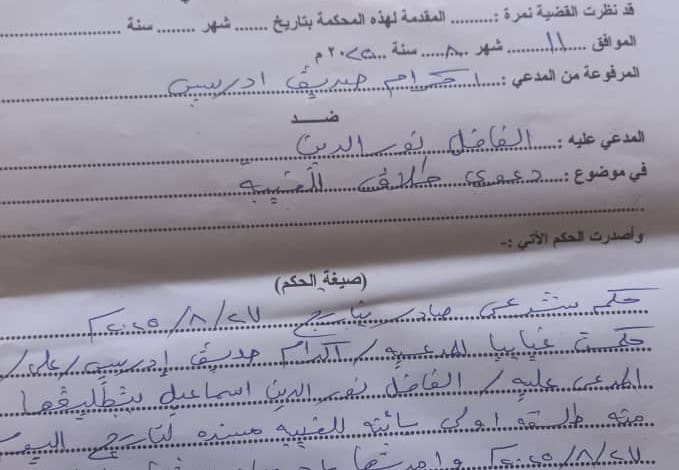 قد نظرت القضية نمرة :......... المقدمة لهذه المحكمة بتاريخ ...... شهر ........ سنة ..........
الموافق ...١١... شهر ..٨... سنة ..٢٠٢٥ م
المرفوعة من المدعي :.... اكرام صديق ادريس
ضــد
المدعي عليه : الفاضل نور الدين
في موضوع :.... دعوى طلاق للغيبة
وأصدرت الحكم الآتي :-
(صيغة الحكم)
حكم شرعي صادر بتاريخ ٢٧/٨/٢٠٢٥
حكمت غيابيا للمدعية/ اكرام صديق إدريس/على/
المدعى عليه/ الفاضل نور الدين اسماعيل بتطليقها
منه طلقة اولى بائنة للغيبة مسندة لتاريخ اليوم
٢٧/٨/٢٠٢٥ وامرتها